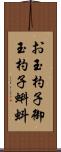 お玉杓子御
玉杓子蝌蚪